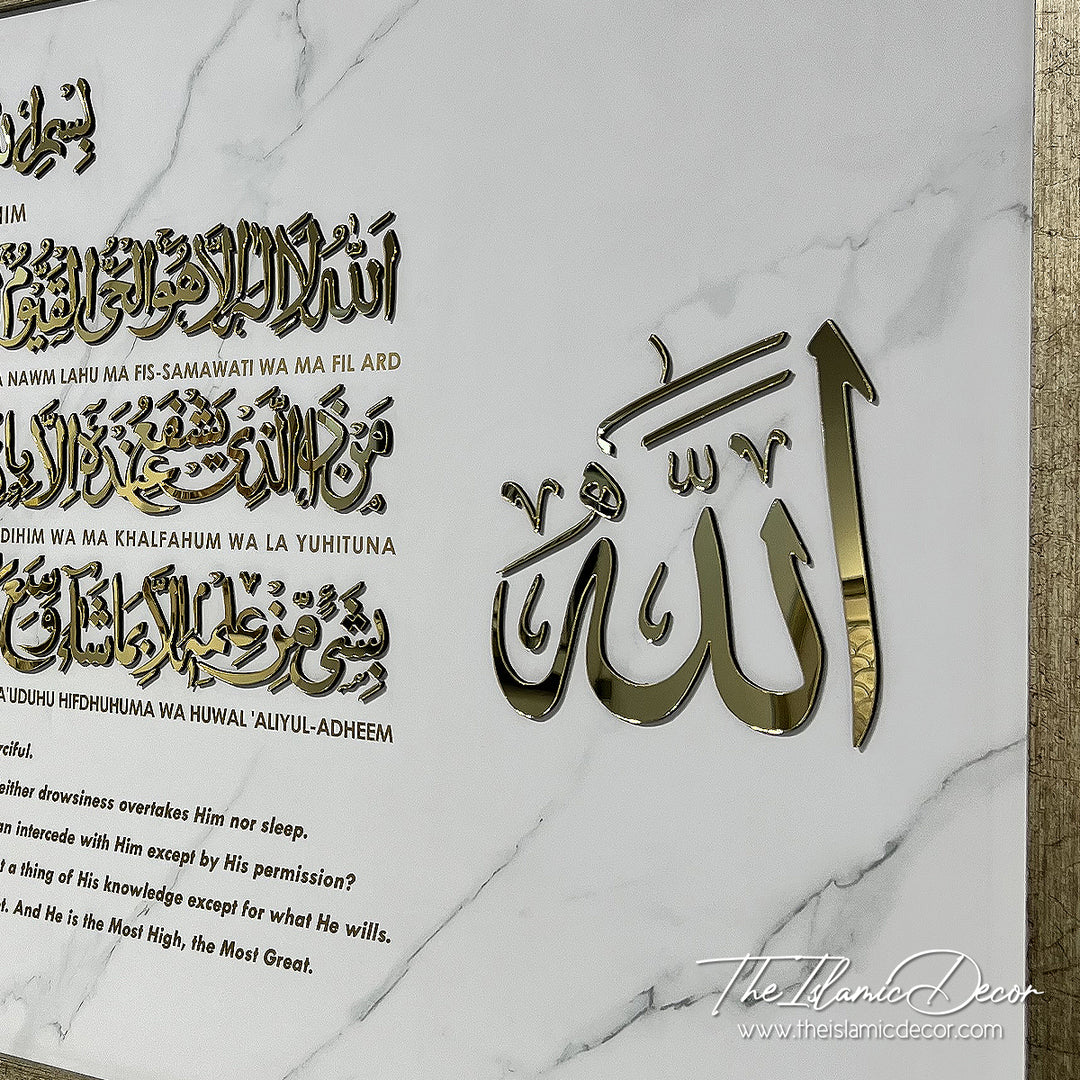 بِسْمِ
HIM
اَللّٰهُ لَا اِلٰهَ اِلَّا هُوَ الْحَيُّ الْقَيُّوْمُ
NAWM LAHU MA FIS-SAMAWATI WA MA FIL ARD
مَنْ ذَا الَّذِيْ يَشْفَعُ عِنْدَهٗ اِلَّا
DIHIM WA MA KHALFAHUM WA LA YUHITUNA
بِشَيْءٍ مِّنْ عِلْمِهٖ اِلَّا بِمَا شَآءَ وَسِعَ
A'UDUHU HIFDHUHUMA WA HUWAL 'ALIYUL-ADHEEM
rciful.
either drowsiness overtakes Him nor sleep.
an intercede with Him except by His permission?
t a thing of His knowledge except for what He wills.
t. And He is the Most High, the Most Great.
الله
TheIslamicDecor
www.theislamicdecor.com